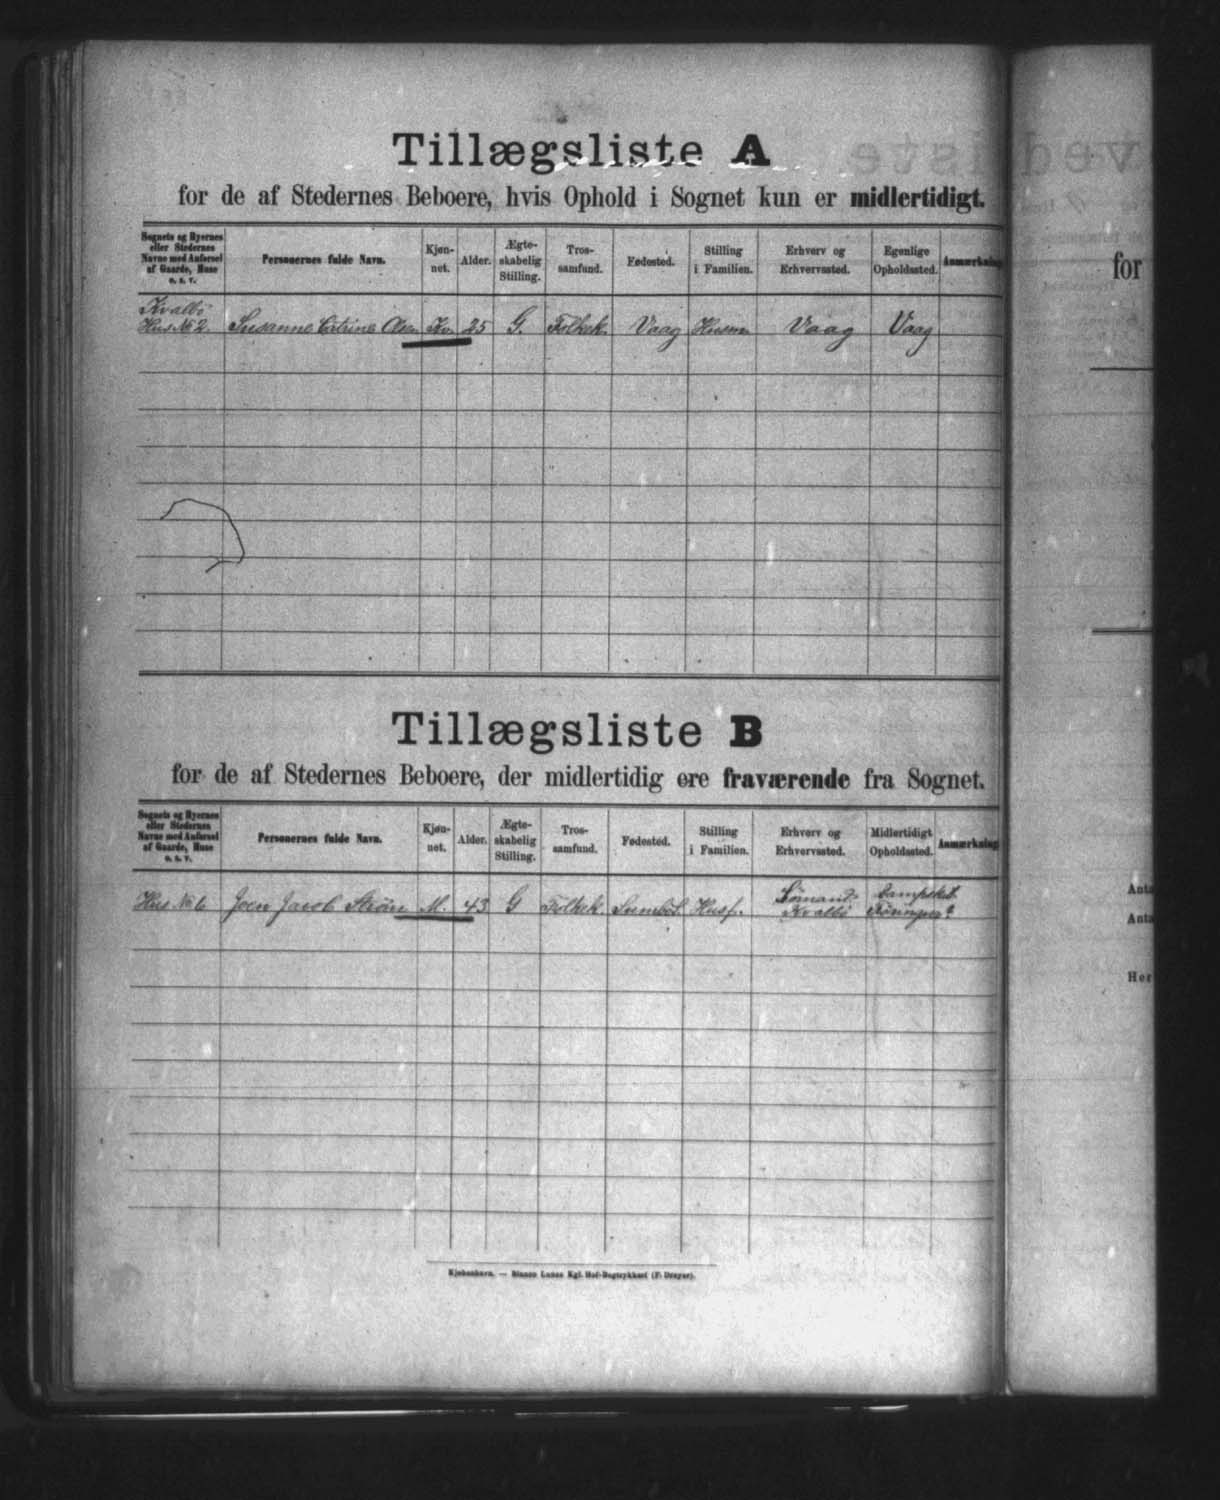 Tillægsliste A
for de af Stedernes Beboere, hvis Ophold i Sognet kun er midlertidigt.
Sognets og Byernes eller Stedernes Navne med Anførsel af Gaarde, Huse o. s. v.
Personernes fulde Navn.
Kjøn-
net.
Alder.
Ægte-
skabelig
Stilling.
Tros-
samfund.
Fødested.
Stilling
i Familien.
Erhverv og
Erhvervssted.
Egenlige
Opholdssted.
Anmærkning
Kvalbö
Hus № 2. Susanne Catrine Olsen Kv. 25 G. Folkek. Vaag Husm Vaag Vaag
Tillægsliste B
for de af Stedernes Beboere, der midlertidig ere fraværende fra Sognet.
Sognets og Byernes eller Stedernes Navne med Anførsel af Gaarde, Huse o. s. v.
Personernes fulde Navn.
Kjøn-
net.
Alder.
Ægte-
skabelig
Stilling.
Tros-
samfund.
Fødested.
Stilling
i Familien.
Erhverv og
Erhvervssted.
Midlertidigt
Opholdssted.
Anmærkning
Hus № 6 Joen Jacob Ström M. 43 G Folkek. Sumböl Husf. Sömand Kvalbö
Kjøbenhavn. — Bianco Lunos Kgl. Hof-Bogtrykkeri (F. Dreyer).
for
Anta
Anta
Her